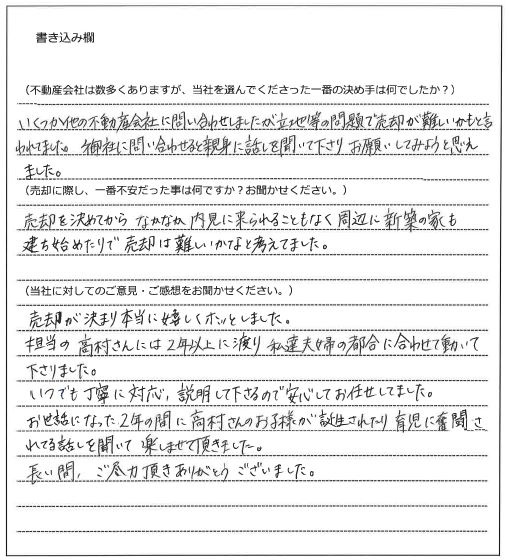 書き込み欄
（不動産会社は数多くありますが、当社を選んでくださった一番の決め手は何でしたか？）
いくつか他の不動産会社に問い合わせしましたが立地等の問題で売却が難しいかもと言
われてました。御社に問い合わせると親身に話しを聞いて下さりお願いしてみようと思え
ました。
（売却に際し、一番不安だった事は何ですか？お聞かせください。）
売却を決めてから なかなか内見に来られることもなく周辺に新築の家も
建ち始めたりで売却は難しいかなと考えてました。
（当社に対してのご意見・ご感想をお聞かせください。）
売却が決まり本当に嬉しくホッとしました。
担当の高村さんには2年以上に渡り私達夫婦の都合に合わせて動いて
下さりました。
いつでも丁寧に対応，説明して下さるので安心してお任せしてました。
お世話になった2年の間に高村さんのお子様が誕生されたり育児に奮闘さ
れてる話しを聞いて楽しませて頂きました。
長い間，ご尽力頂きありがとうございました。